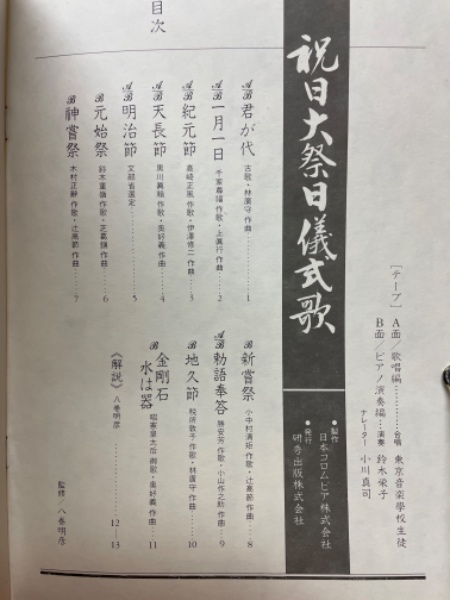 祝日大祭日儀式歌
[テープ] A面/歌唱編…………合唱 東京音楽學校生徒
B面/ピアノ演奏編…演奏 鈴木栄子
ナレーター 小川真司
●製作
日本コロムビア株式会社
●発行
研秀出版株式会社
目次
A/B 君が代 古歌・林廣守 作曲 1
A/B 一月一日 千家尊福 作歌・上眞行 作曲 2
A/B 紀元節 高崎正風 作歌・伊澤修二 作曲 3
A/B 天長節 黒川眞頼 作歌・奥好義 作曲 4
A/B 明治節 文部省選定 5
B 元始祭 鈴木重嶺 作歌・芝葛鎮 作曲 6
B 神嘗祭 木村正辭 作歌・辻高節 作曲 7
B 新嘗祭 小中村清矩 作歌・辻高節 作曲 8
A/B 勅語奉答 勝安芳 作歌・小山作之助 作曲 9
B 地久節 税所敦子 作歌・林廣守 作曲 10
B 金剛石
水は器 昭憲皇太后 御歌・奥好義 作曲 11
《解説》 八巻明彦 12—13
監修/八巻明彦